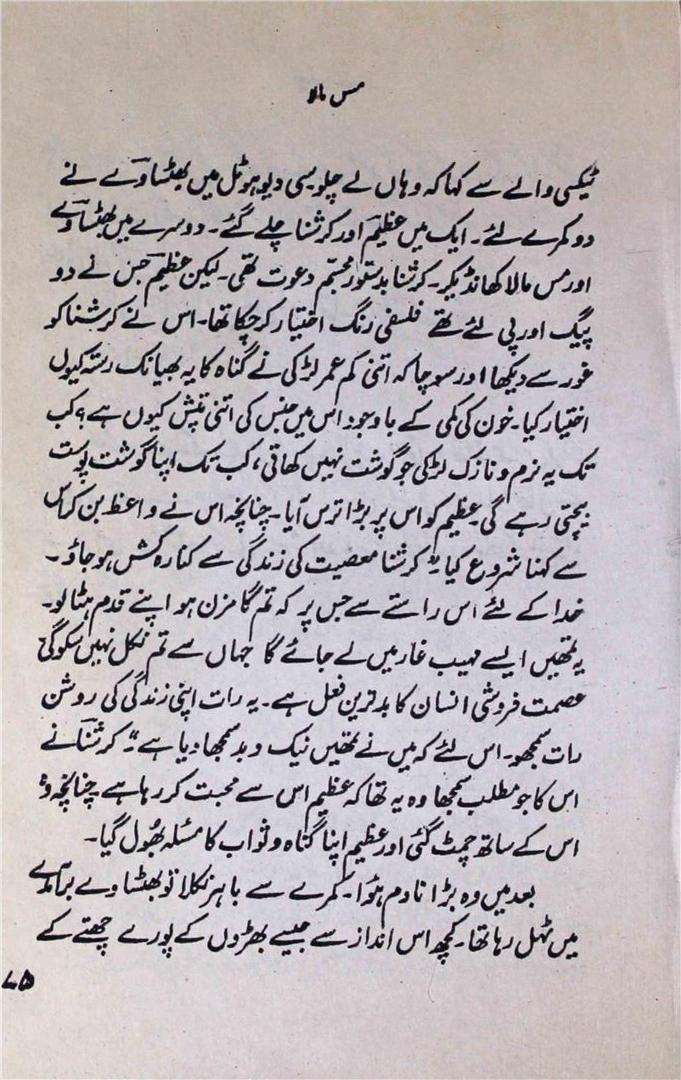 مس مالا
ٹیکسی والے سے کہا کہ وہاں لے چلو سی ویو ہوٹل میں بھٹساوے نے
دو کمرے لئے۔ ایک میں عظیم اور کرشنا چلے گئے۔ دوسرے میں بھٹساوے
اور مس مالا کھانڈیکر۔ کرشنا بدستور مجسم دعوت تھی۔ لیکن عظیم جس نے دو
پیگ اور پی لئے تھے فلسفی رنگ اختیار کر چکا تھا۔ اس نے کرشنا کو
غور سے دیکھا اور سوچا کہ اتنی کم عمر لڑکی نے گناہ کا یہ بھیانک رستہ کیوں
اختیار کیا۔ خون کی کمی کے باوجود اس میں جنس کی اتنی تپش کیوں ہے؟ کب
تک یہ نرم و نازک لڑکی جو گوشت نہیں کھاتی، کب تک اپنا گوشت پوست
بیچتی رہے گی۔ عظیم کو اس پر بڑا ترس آیا۔ چنانچہ اس نے واعظ بن کر اس
سے کہنا شروع کیا "کرشنا معصیت کی زندگی سے کنارہ کش ہو جاؤ۔
خدا کے لئے اس راستے سے جس پر کہ تم گامزن ہو اپنے قدم ہٹا لو۔
یہ تمھیں ایسے مہیب غار میں لے جائے گا جہاں سے تم نکل نہیں سکو گی
عصمت فروشی انسان کا بدترین فعل ہے۔ یہ رات اپنی زندگی کی روشن
رات سمجھو۔ اس لئے کہ میں نے تمھیں نیک و بد سمجھا دیا ہے" کرشنا نے
اس کا جو مطلب سمجھا وہ یہ تھا کہ عظیم اس سے محبت کر رہا ہے چنانچہ وہ
اس کے ساتھ چمٹ گئی اور عظیم اپنا گناہ و ثواب کا مسئلہ بھُول گیا۔
بعد میں وہ بڑا نادم ہُوا۔ کمرے سے باہر نکلا تو بھٹساوے برآمدے
میں ٹہل رہا تھا۔ کچھ اس انداز سے جیسے بھڑوں کے پورے چھتے کے
۷۵